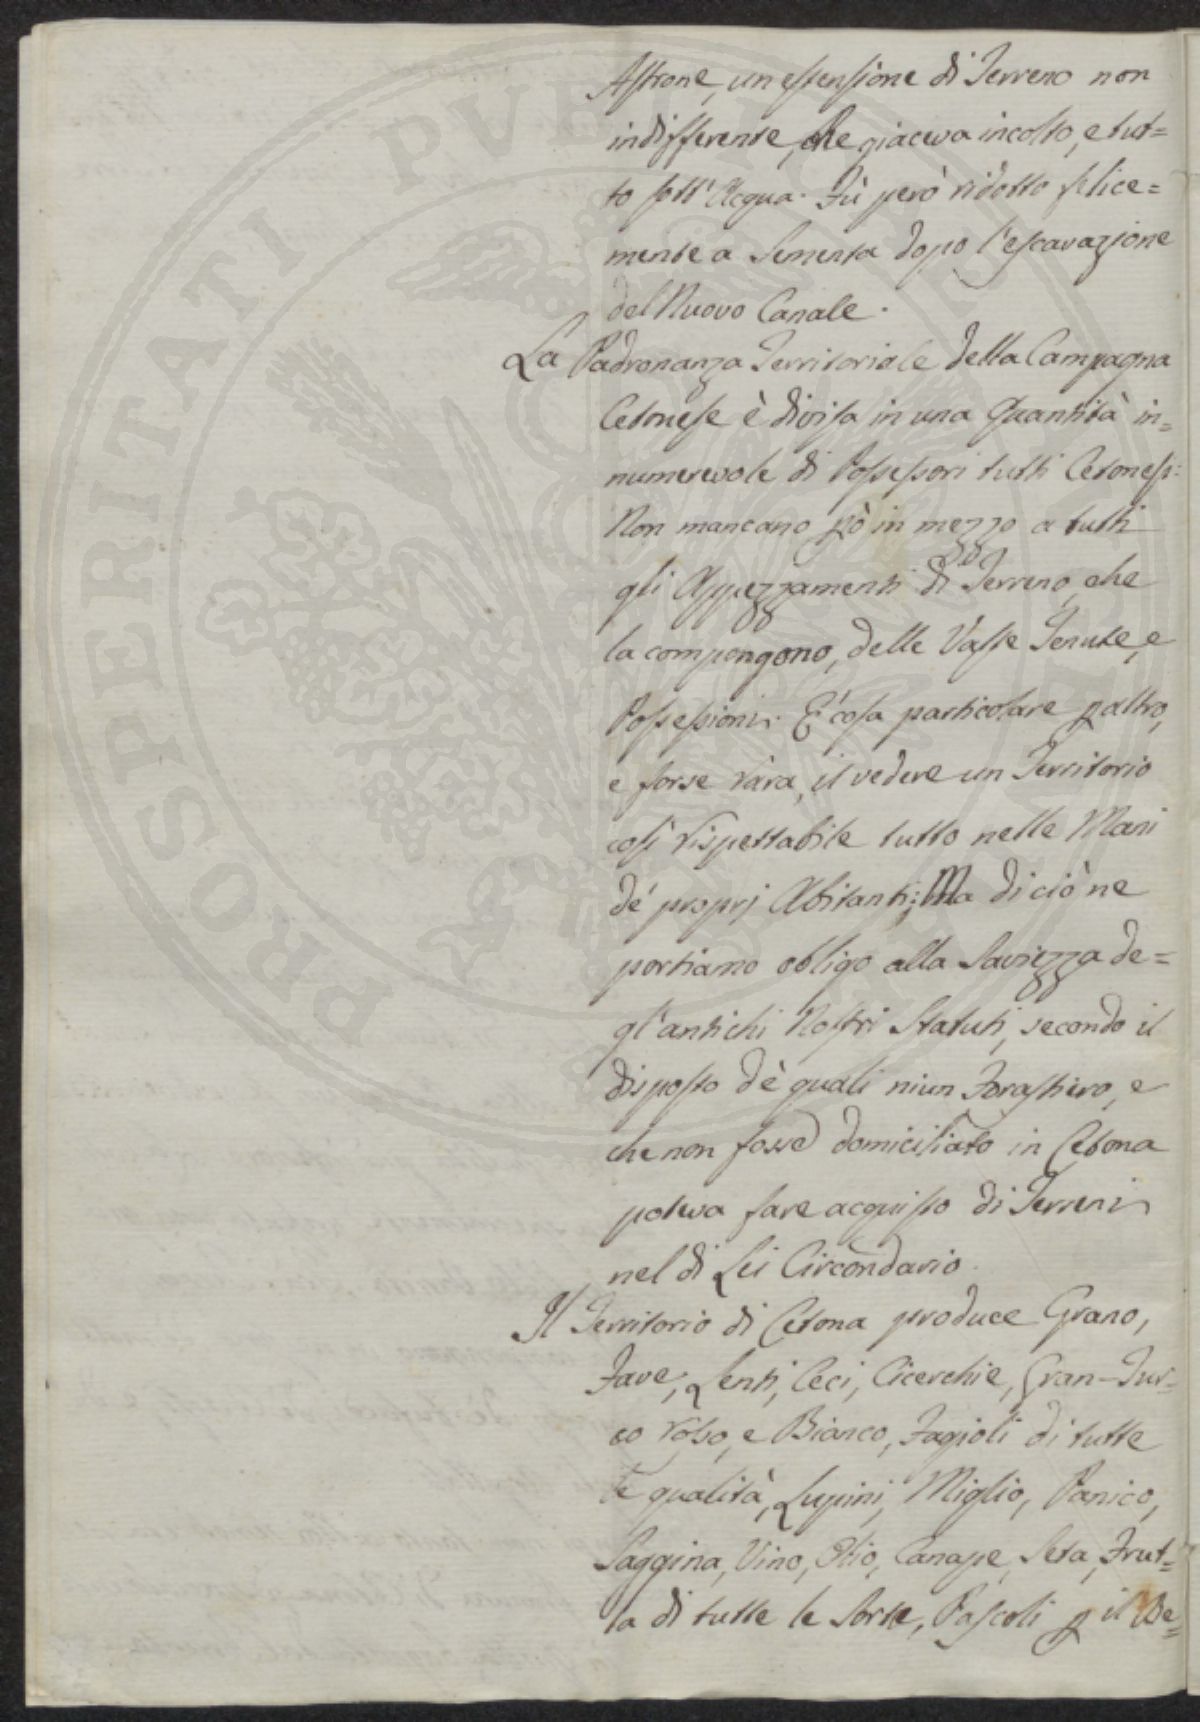 Astrone, un estensione di Terreno non
indifferente, che giaceva incolto, e tut=
to sott' Acqua. Fù però ridotto felice=
mente a Sementa dopo l'escavazione
del Nuovo Canale.
La Padronanza Territoriale della Campagna
Cetonese è divisa in una Quantità in=
numerevole di Possessori tutti Cetonesi:
Non mancano pò in mezzo a tutti
gli Appezzamenti di Terreno, che
la compongono, delle Vaste Tenute, e
Possessioni. E' cosa particolare p altro,
e forse rara, il vedere un Territorio
così rispettabile tutto nelle Mani
de' proprj Abitanti; Ma di ciò ne
portiamo obligo alla Saviezza de=
gl'antichi Nostri Statuti, secondo il
disposto dè quali niun Forastiero, e
che non fosse domiciliato in Cetona
poteva fare acquisto di Terreni
nel di Lei Circondario.
Il Territorio di Cetona produce Grano,
Fave, Lenti, Ceci, Cicerchie, Gran-Tur=
co rosso, e Bianco, Fagioli di tutte
le qualità, Lupini, Miglio, Panico,
Saggina, Vino, Olio, Canape, Seta, Frut=
ta di tutte le Sorte, Pascoli p il Be=
PROSPERITATI PVBLICAE